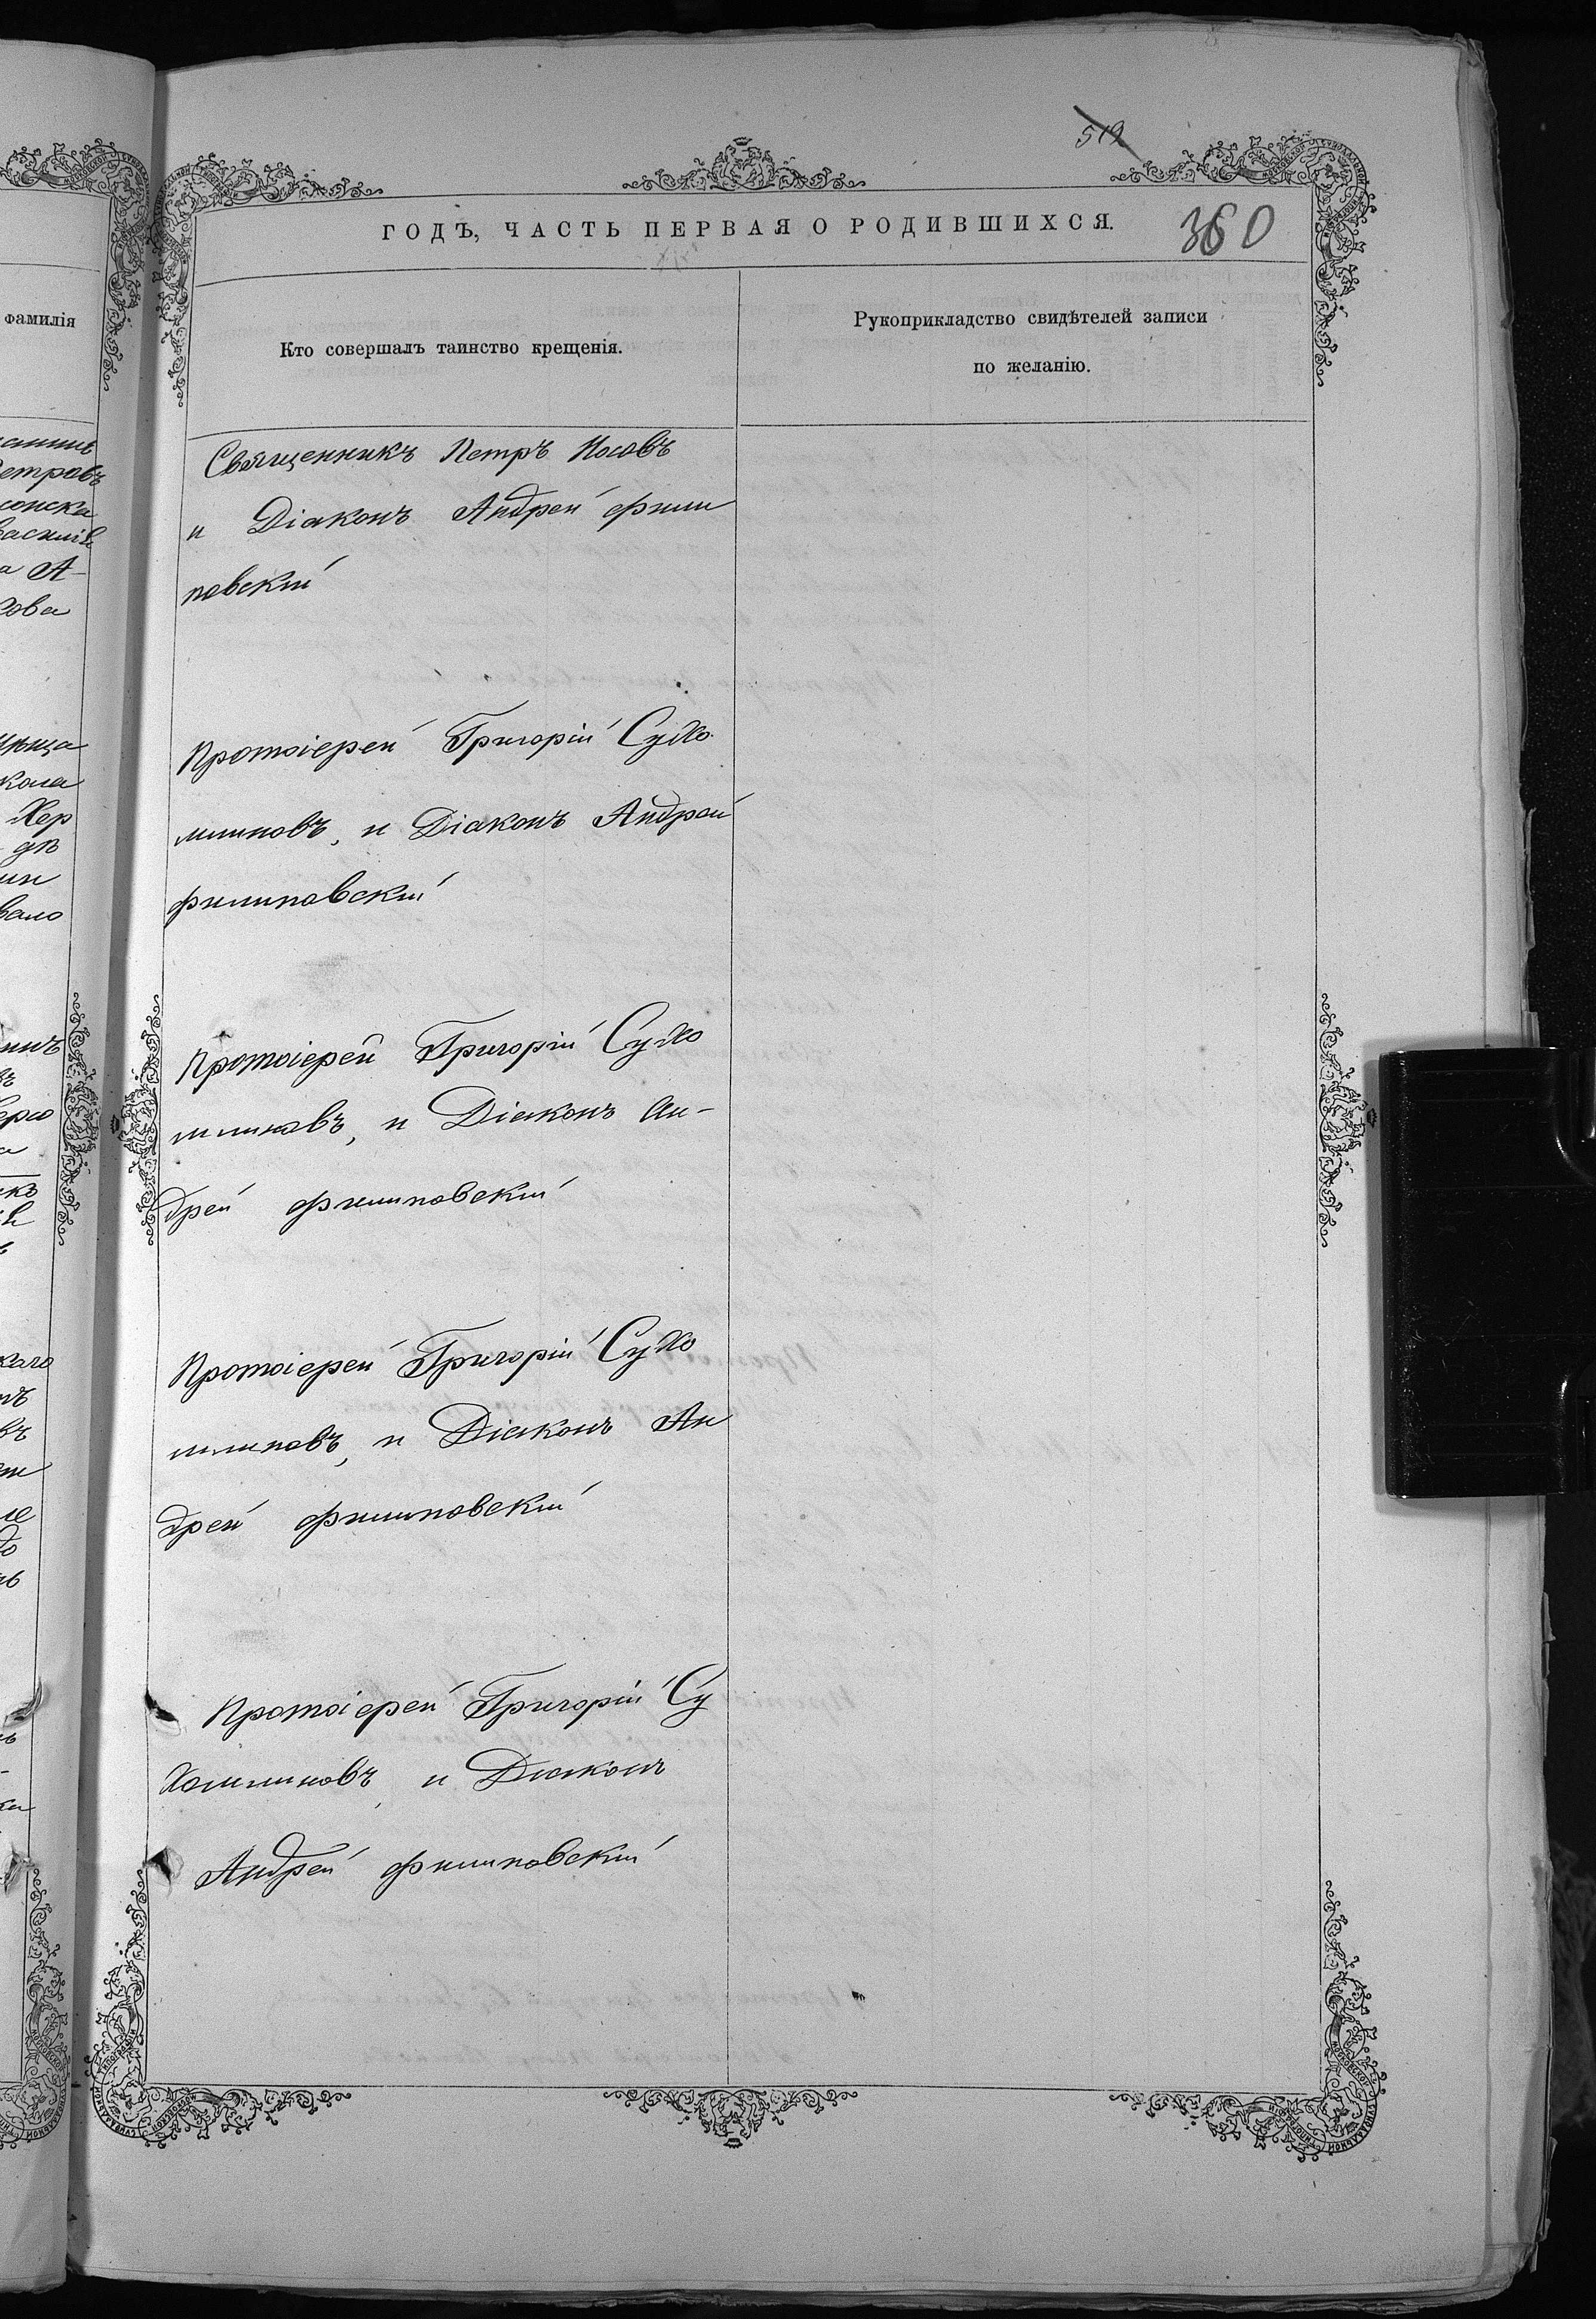 519
ГОДЪ, ЧАСТЬ ПЕРВАЯ О РОДИВШИХСЯ.
360
фамилія
Кто совершалъ таинство крещенія.
Рукоприкладство свидѣтелей записи
по желанію.
Священникъ Петръ Носовъ
и Діаконъ Андрей Фили
повскій
Протоіерей Григорій Сухо
млиновъ, и Діаконъ Андрей
Филиповскій
Протоіерей Григорій Сухо
млиновъ, и Діаконъ Ан-
дрей Филиповскій
Протоіерей Григорій Сухо
млиновъ, и Діаконъ Ан
дрей Филиповскій
Протоіерей Григорій Су
хомлиновъ, и Діаконъ
Андрей Филиповскій